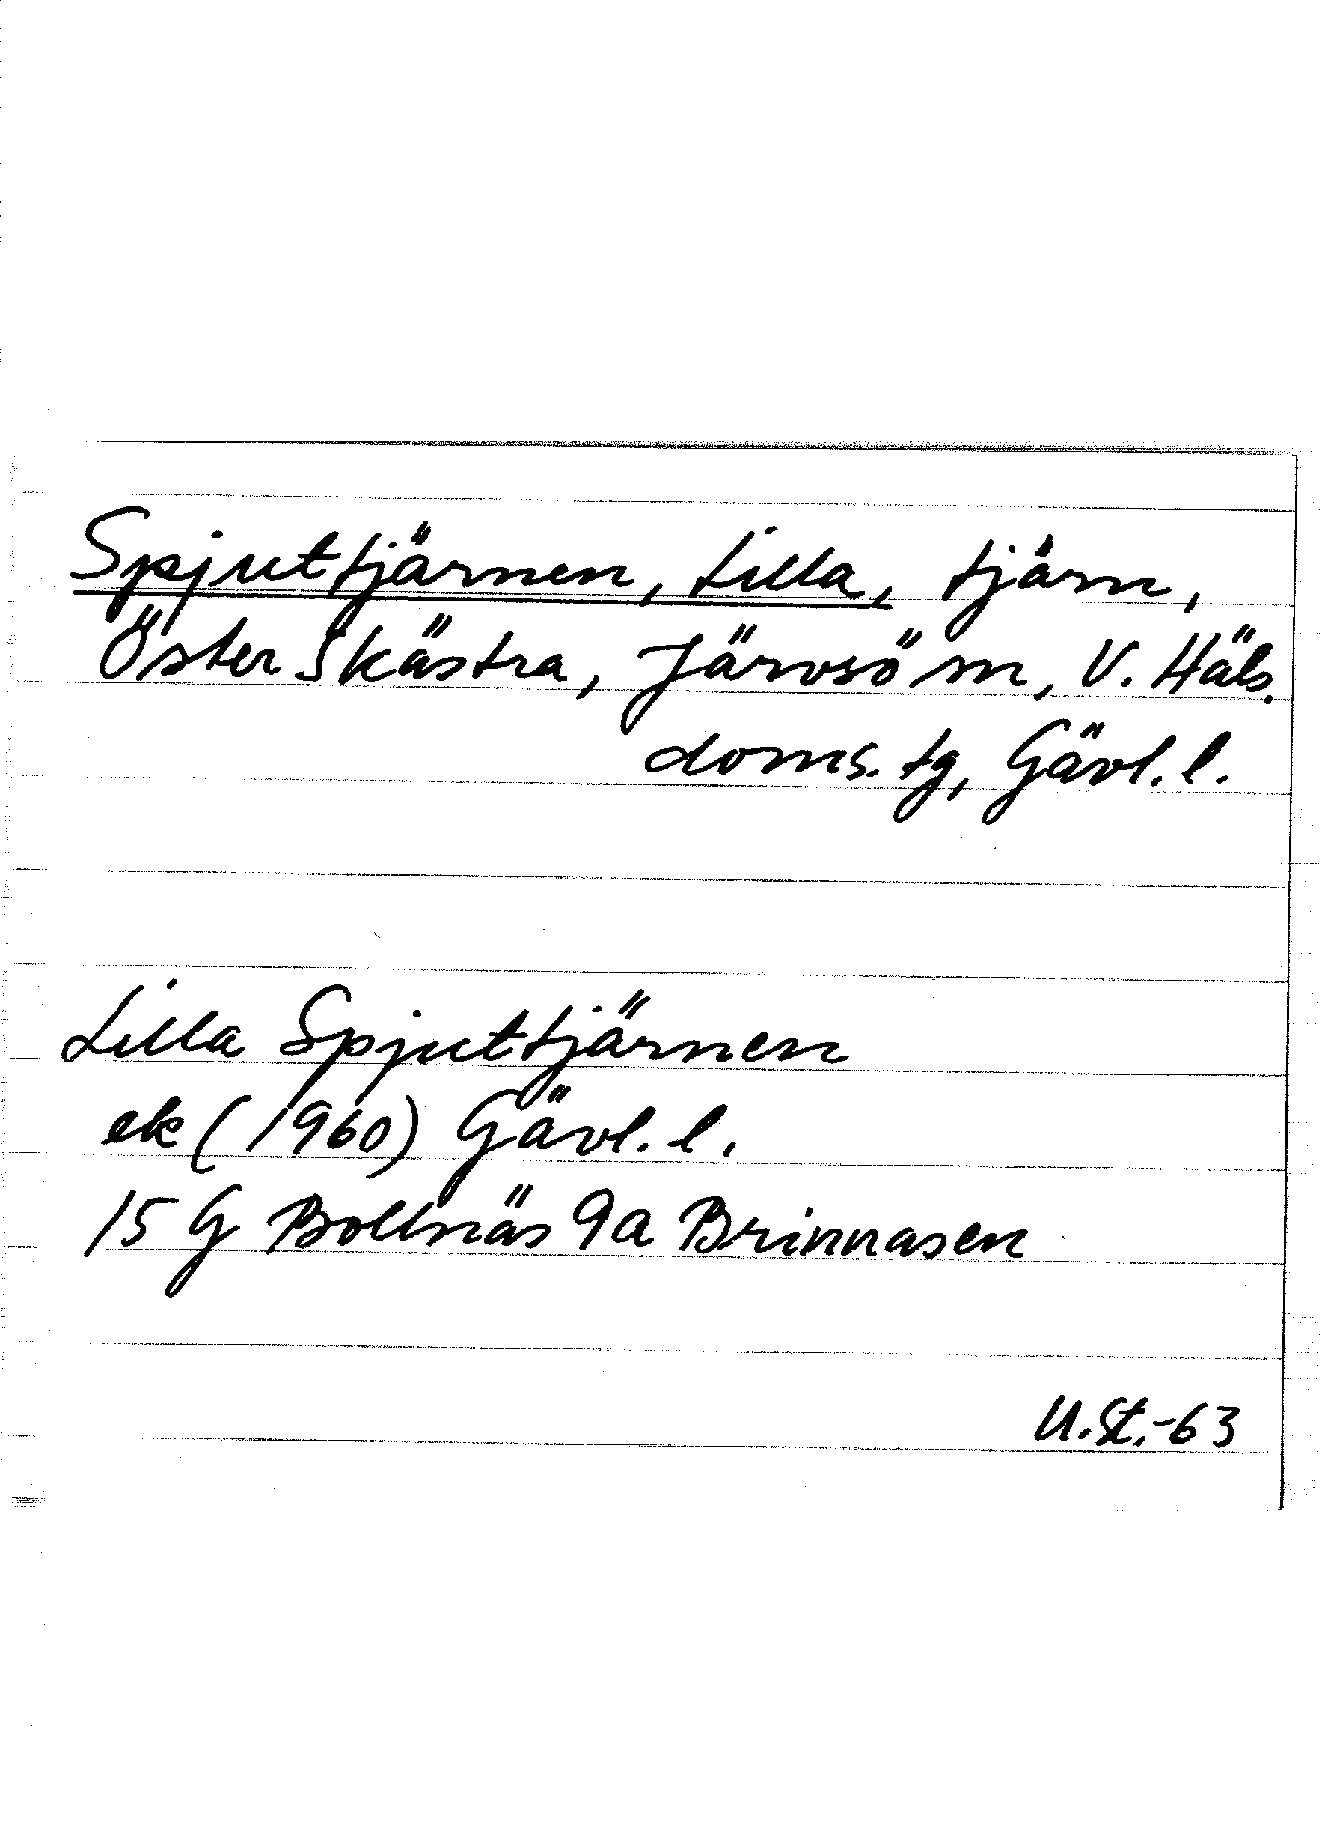 Spjuttjärnen, Lilla, tjärn,
Öster Skästra, Järvsö sn, V. Häls.
doms. tg, Gävl. l.
Lilla Spjuttjärnen
ek (1960) Gävl. l.
15 G Bollnäs 9a Brinnåsen
U.St.-63